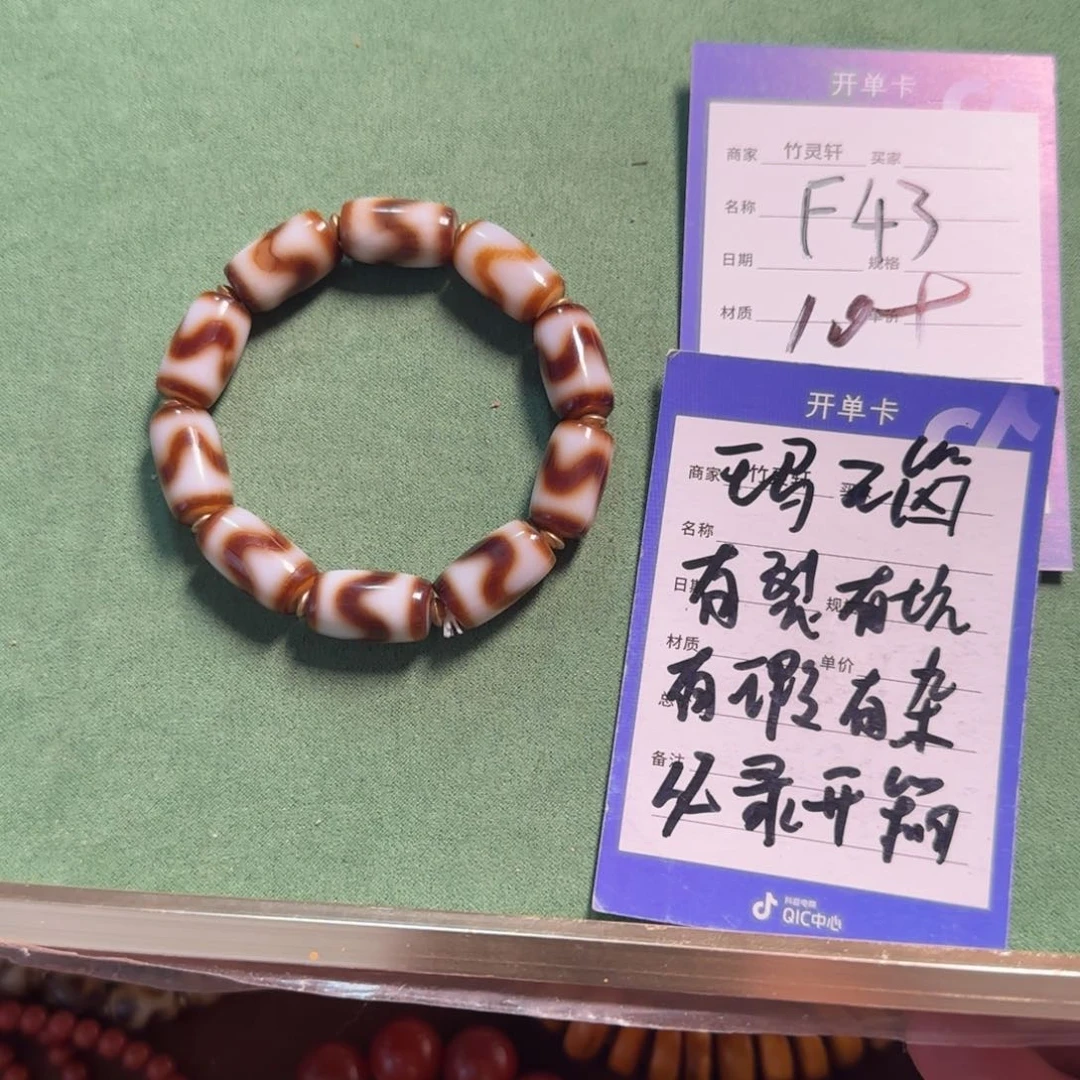 开单卡
商家 竹灵轩 买家
名称 F43
日期 规格
材质 10 单价
开单卡
商家 竹灵轩 买
玛瑙
名称
有裂有坑
日期 规
材质 单价
有瑕有杂
总
备注
必录开箱
抖音电商
QIC中心